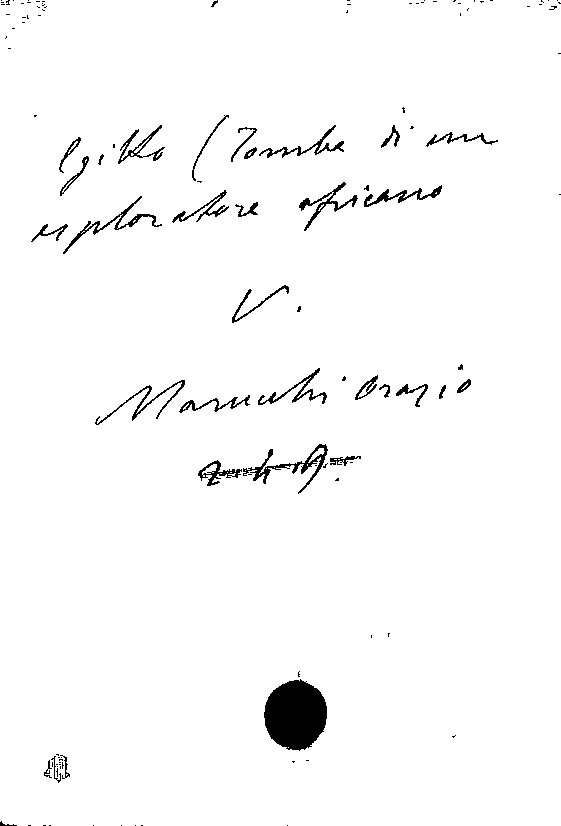 Egitto (Tomba di un
esploratore africano
V.
Marucchi Orazio